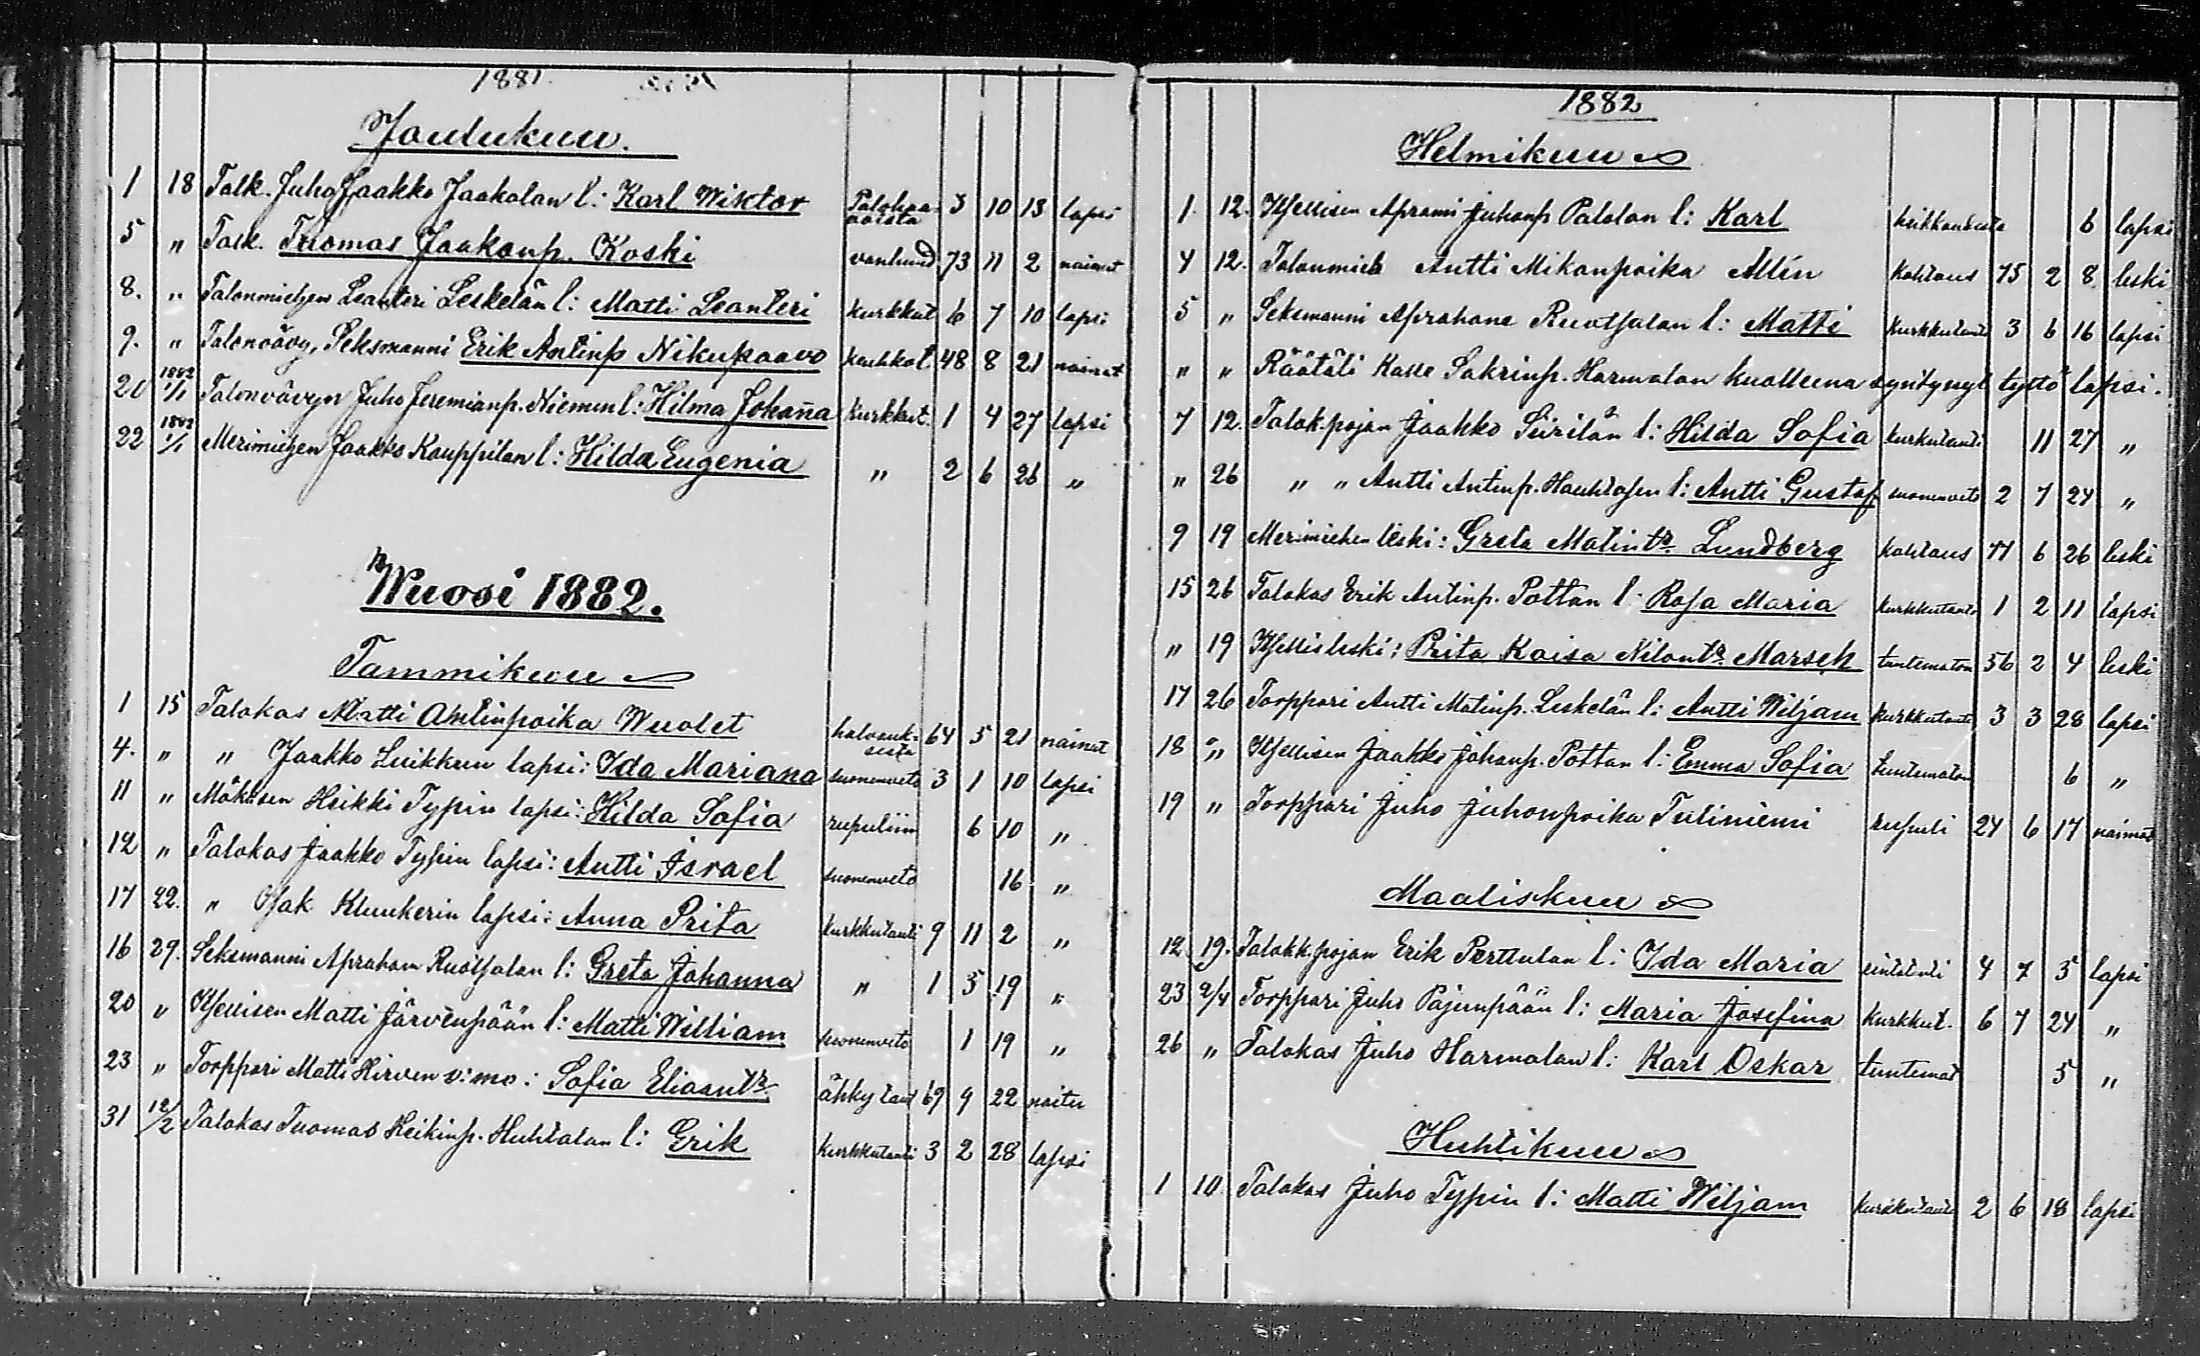 1881.
Joulukuu.
1 18 Talk. Juho Jaakko Jaakolan l: Karl Wiktor Palohaavoista 3 10 13 lapsi
5 " Talk. Tuomas Jaakonp. Koski vanhuud 73 11 2 nainut
8. " Talonmiehen Leanteri Leskelän l: Matti Leanteri kurkkut 6 7 10 lapsi
9. " Talonvävy, Seksmanni Erik Antinp Nikupaavo keuhkot 48 8 21 nainut
20 1882 1/1 Talonvävyn Juho Jeremianp. Niemen l: Hilma Johanna kurkkut. 1 4 27 lapsi
22 1882 1/1 Merimiehen Jaakko Kauppilan l: Hilda Eugenia " 2 6 26 "
Wuosi 1882.
Tammikuu
1 15 Talokas Matti Antinpoika Wuolet halvauksesta 64 5 21 nainut
4. " " Jaakko Luikkuun lapsi: Ida Mariana suonenveto 3 1 10 lapsi
11 " Mökisen Heikki Typin lapsi: Hilda Sofia rupuliin 6 10 "
12 " Talokas Jaakko Typin lapsi: Antti Israel suonenveto 16 "
17 22. " Isak Kluukerin lapsi: Anna Prita kurkkutauti 9 11 2 "
16 29. Seksmanni Apraham Ruotsalan l: Greta Johanna " 1 5 19 "
20 " Itsellisen Matti Järvenpään l: Matti William suonenveto 1 19 "
23 " Torppari Matti Hirven v:mo: Sofia Eliaantr ähky taut 69 9 22 naitu
31 12/2 Talokas Tuomas Heikinp. Huhtalan l: Erik kurkkutauti 3 2 28 lapsi
1882
Helmikuu
1 12. Itsellisen Aprami Juhonp Palolan l: Karl 6 lapsi
4 12. Talonmies Antti Mikonpoika Allin kohtaus 75 2 8 leski
5 " Seksmanni Aprahane Ruotsalan l: Matti kurkkutauti 3 6 16 lapsi
" " Räätäli Kalle Sakrinp. Harmalan kuolleena syntynyt tyttö lapsi.
7 12. Talok.pojan Jaakko Siirilän l: Hilda Sofia kurkutauti 11 27 "
" 26 " " Antti Antinp. Hauhtosen l: Antti Gustaf suonenveto 2 7 24 "
9 19 Merimiehen leski: Greta Matintr. Lundberg kohtaus 77 6 26 leski
15 26 Talokas Erik Antinp. Pottan l: Rosa Maria kurkkutauti 1 2 11 lapsi
" 19 Itsellisleski: Prita Kaisa Nilontr. Marsek tuntematon 56 2 4 leski
17 26 Torppari Antti Matinp. Leskelän l: Antti Wiljam kurkkutauti 3 3 28 lapsi
18 " Itsellisen Jaakko Johanp. Pottan l: Emma Sofia tuntematon 6 "
19 " Torppari Juho Juhonpoika Tuliniemi rupuli 24 6 17 nainut
Maaliskuu
12 19. Talokk.pojan Erik Perttulan l: Ida Maria 4 7 5 lapsi
23 2/4 Torppari Juho Pajunpään l: Maria Josefina kurkkut. 6 7 24 "
26 " Talokas Juho Harmalan l: Karl Oskar tuntemat 5 "
Huhtikuu
1 10 Talokas Juho Typin l: Matti Wiljam kurkkutauti 2 6 18 lapsi